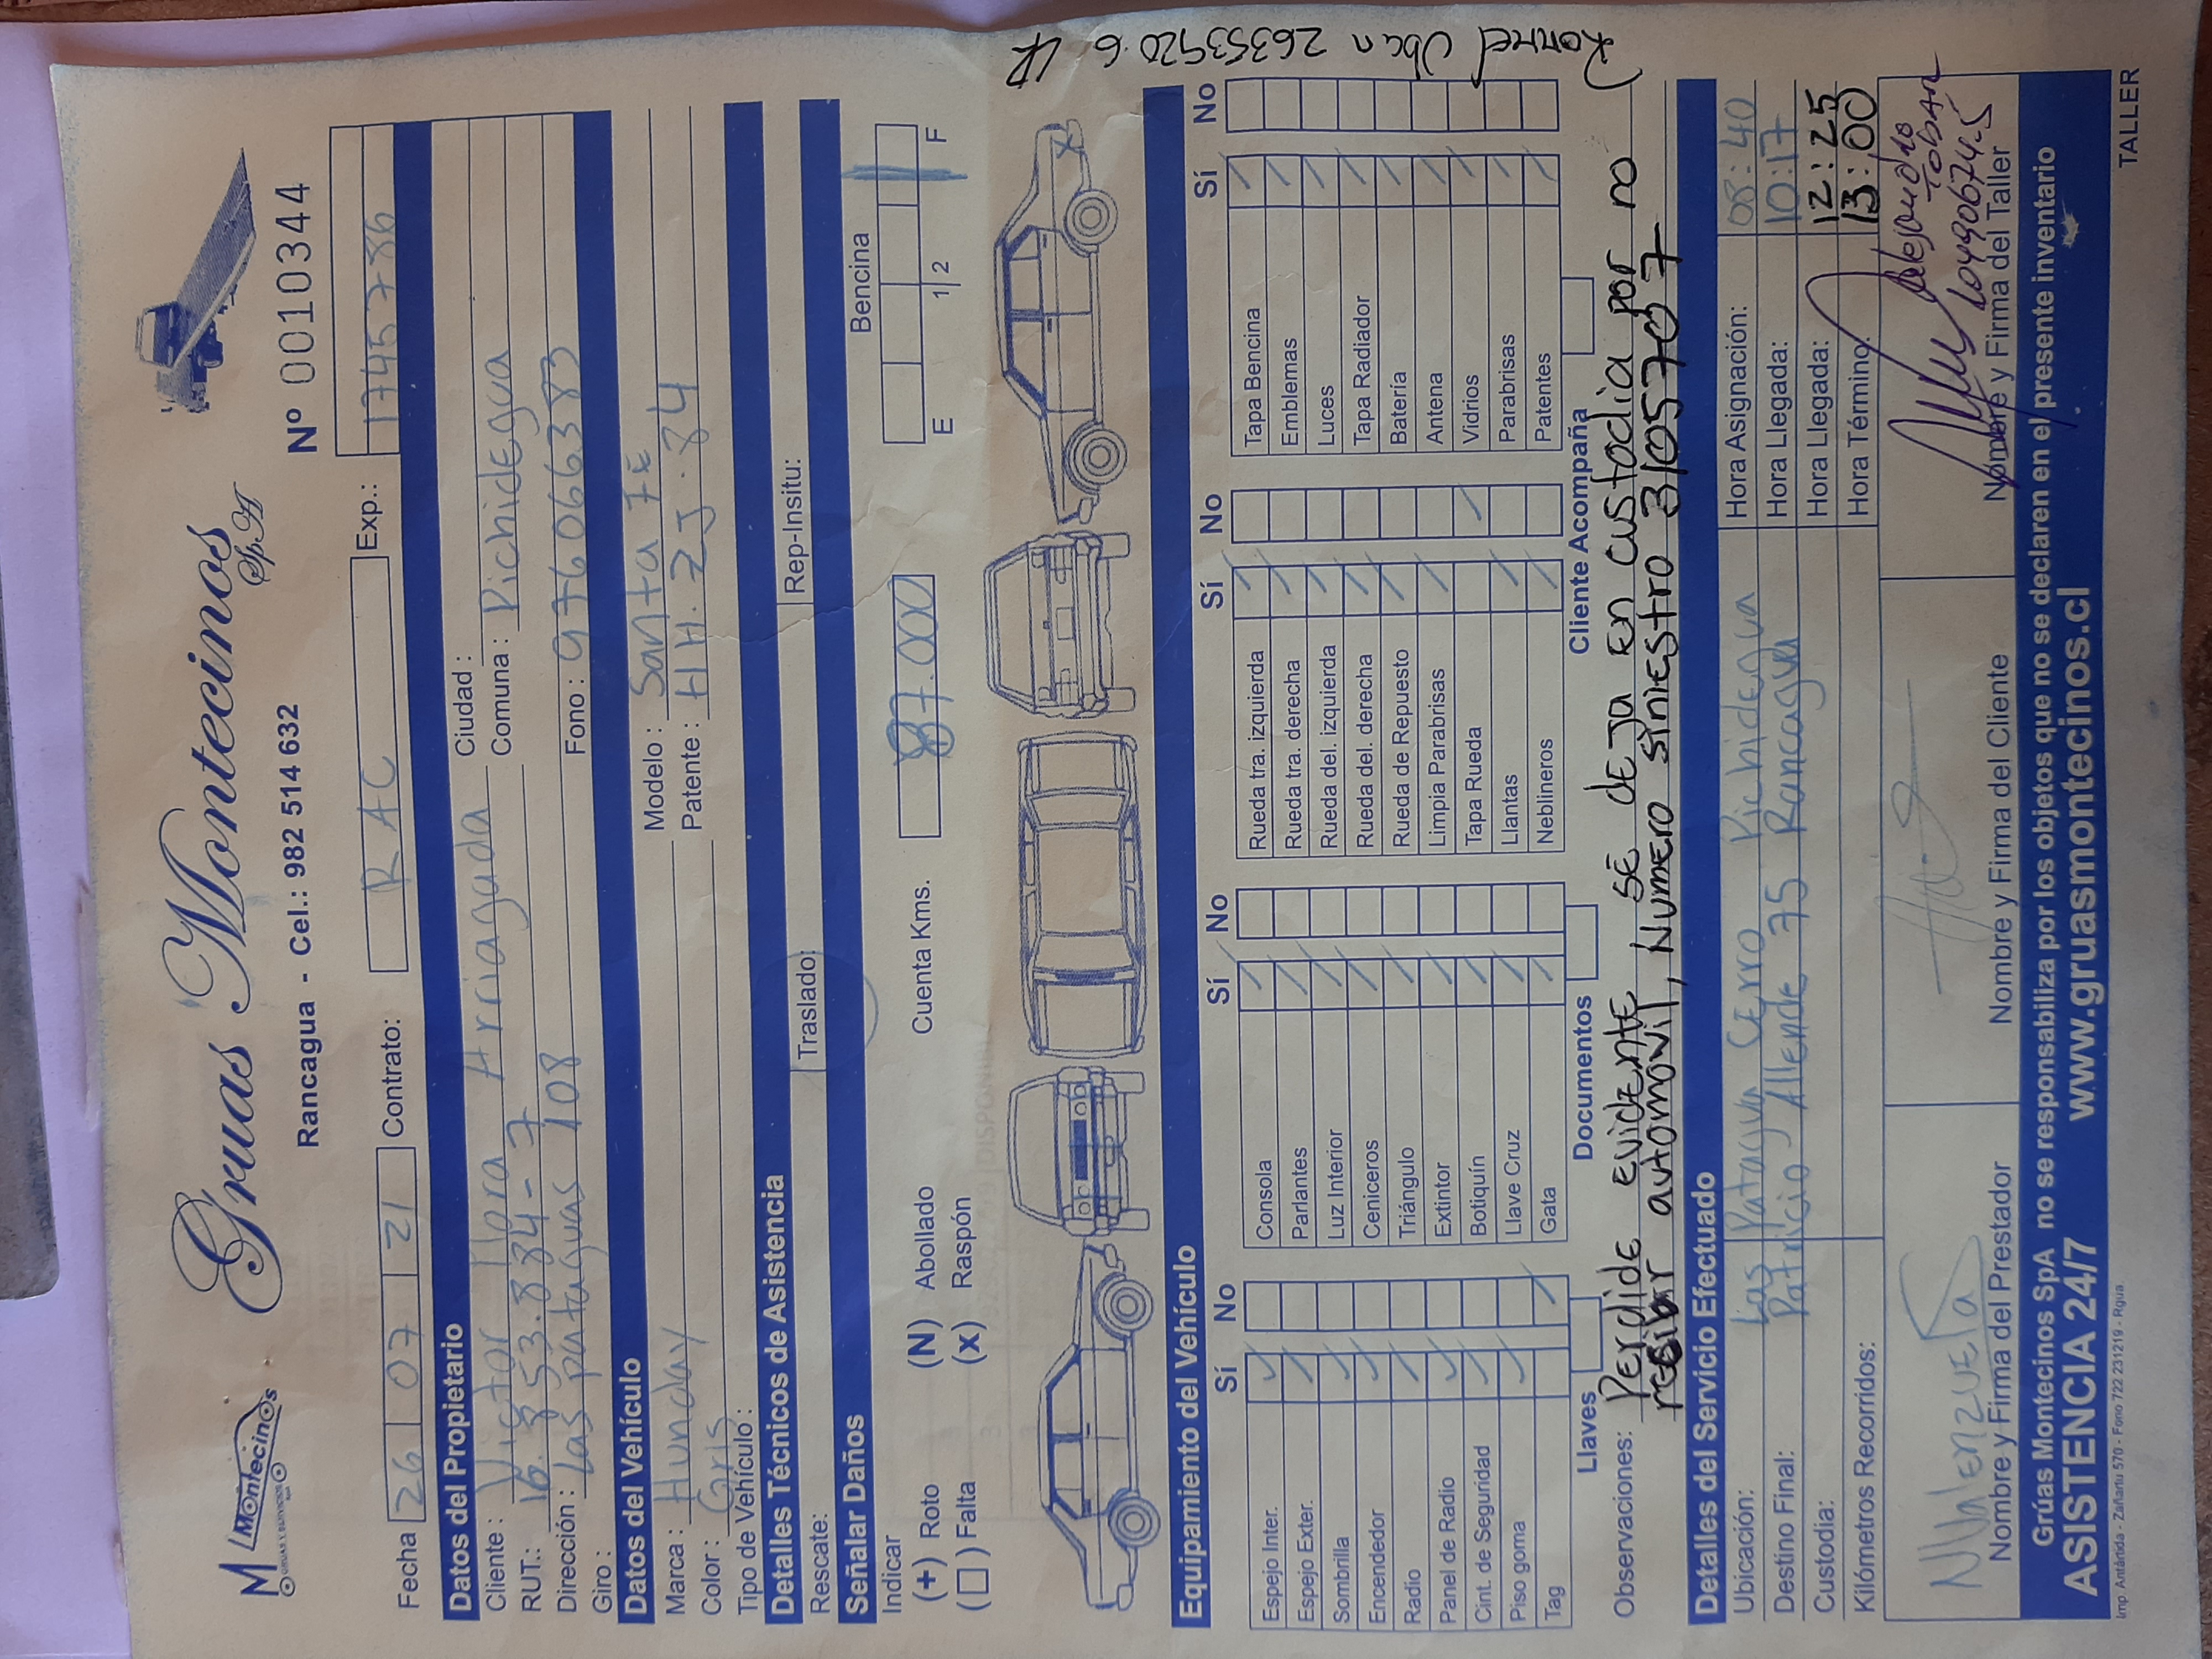 M Montecinos
GRUAS Y SERVICIOS
Gruas Montecinos SpA
Rancagua - Cel.: 982 514 632
Nº 0010344
Fecha 26 07 21 Contrato: RAC Exp.: 17457786
Datos del Propietario
Cliente: Victor Jara Arriagada Ciudad:
RUT.: 16.853.834-7 Comuna: Pichidegua
Dirección: Las pataguas 108 Fono: 976066383
Giro:
Datos del Vehículo
Marca: Hunday Modelo: Santa FE
Color: Gris Patente: HH.ZJ.84
Tipo de Vehículo:
Detalles Técnicos de Asistencia
Rescate: Traslado: Rep-Insitu:
Señalar Daños
Indicar Cuenta Kms. 87.000 Bencina
(+) Roto (N) Abollado E 1/2 F
(□) Falta (x) Raspón
Equipamiento del Vehículo
Sí No Sí No Sí No Sí No
Espejo Inter. Consola Rueda tra. izquierda Tapa Bencina
Espejo Exter. Parlantes Rueda tra. derecha Emblemas
Sombrilla Luz Interior Rueda del. izquierda Luces
Encendedor Ceniceros Rueda del. derecha Tapa Radiador
Radio Triángulo Rueda de Repuesto Batería
Panel de Radio Extintor Limpia Parabrisas Antena
Cint. de Seguridad Botiquín Tapa Rueda Vidrios
Piso goma Llave Cruz Llantas Parabrisas
Tag Gata Neblineros Patentes
Llaves Documentos Cliente Acompaña
Observaciones: Perdide evidente sE deja En custodia por no
resibir automowil, Numero siniestro 3105707
Rommel Uban 26353920.6
Detalles del Servicio Efectuado
Ubicación: Las Pataguas Cerro Pichidegua Hora Asignación: 08:40
Destino Final: Patricio Allende 75 Rancagua Hora Llegada: 10:17
Custodia: Hora Llegada: 12:25
Kilómetros Recorridos: Hora Término: 13:00
NValenzuela
Alejandro
Tobar
10490674-5
Nombre y Firma del Prestador Nombre y Firma del Cliente Nombre y Firma del Taller
Grúas Montecinos SpA no se responsabiliza por los objetos que no se declaren en el presente inventario
ASISTENCIA 24/7 www.gruasmontecinos.cl
Imp. Antártida - Zañartu 570 - Fono 722 231219 - Rgua
TALLER